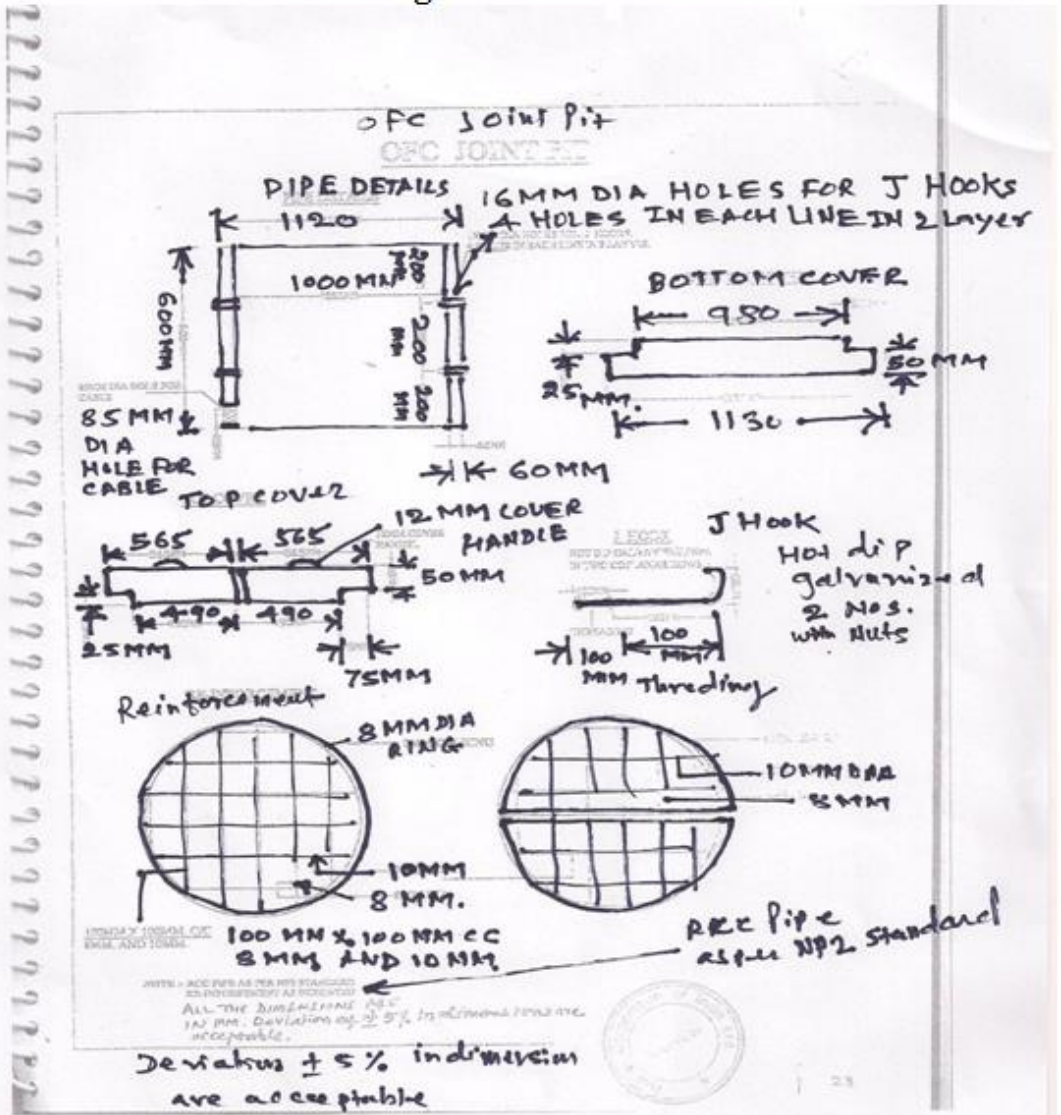 OFC Joint Pit
OFC JOINT PIT
PIPE DETAILS
16MM DIA HOLES FOR J HOOKS
4 HOLES IN EACH LINE IN 2 Layer
1120
1000MM
200 MM
200 MM
200 MM
600MM
85MM
DIA
HOLE FOR
CABLE
60MM
BOTTOM COVER
980
50MM
25MM.
1130
TOP COVER
12MM COVER
HANDLE
565 565
50MM
490 490
25MM
75MM
J Hook
J HOOK
Hot dip
galvanized
2 Nos.
with Nuts
100 MM
100 MM
Threding
Reinforcement
8MM DIA
RING
10MM
8MM.
10MM DIA
8MM
100MM X 100MM C/C
8MM AND 10MM
100 MM x 100MM CC
8MM AND 10MM
RCC Pipe
as per NP2 Standard
ALL THE DIMENSIONS ARE
IN MM. Deviation of ± 5% in dimensions are
acceptable.
Deviation ± 5% in dimension
are acceptable
23